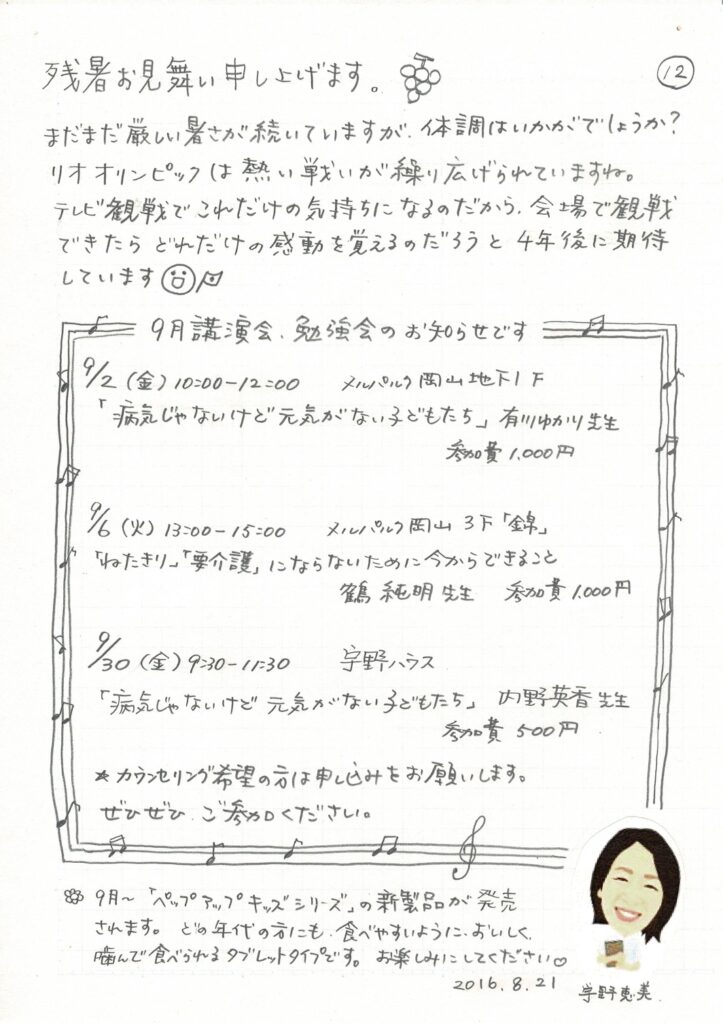 残暑お見舞い申し上げます。
12
まだまだ厳しい暑さが続いていますが、体調はいかがでしょうか?
リオオリンピックは熱い戦いが繰り広げられていますね。
テレビ観戦でこれだけの気持ちになるのだから、会場で観戦
できたら どれだけの感動を覚えるのだろうと 4年後に期待
しています
9月講演会、勉強会のお知らせです
9/2 (金) 10:00-12:00 メルパルク岡山地下1F
「病気じゃないけど元気がない子どもたち」 有川ゆかり先生
参加費 1,000円
9/6 (火) 13:00-15:00 メルパルク岡山 3F「錦」
「ねたきり」「要介護」にならないために今からできること
鶴 純明先生 参加費 1,000円
9/30 (金) 9:30-11:30 宇野ハウス
「病気じゃないけど 元気がない子どもたち」 内野英香先生
参加費 500円
*カウンセリング希望の方は申し込みをお願いします。
ぜひぜひ、ご参加ください。
9月~「ペップアップキッズシリーズ」の新製品が発売
されます。 どの年代の方にも、食べやすいように、おいしく、
噛んで食べられるタブレットタイプです。 お楽しみにしてください♡
2016.8.21
宇野恵美